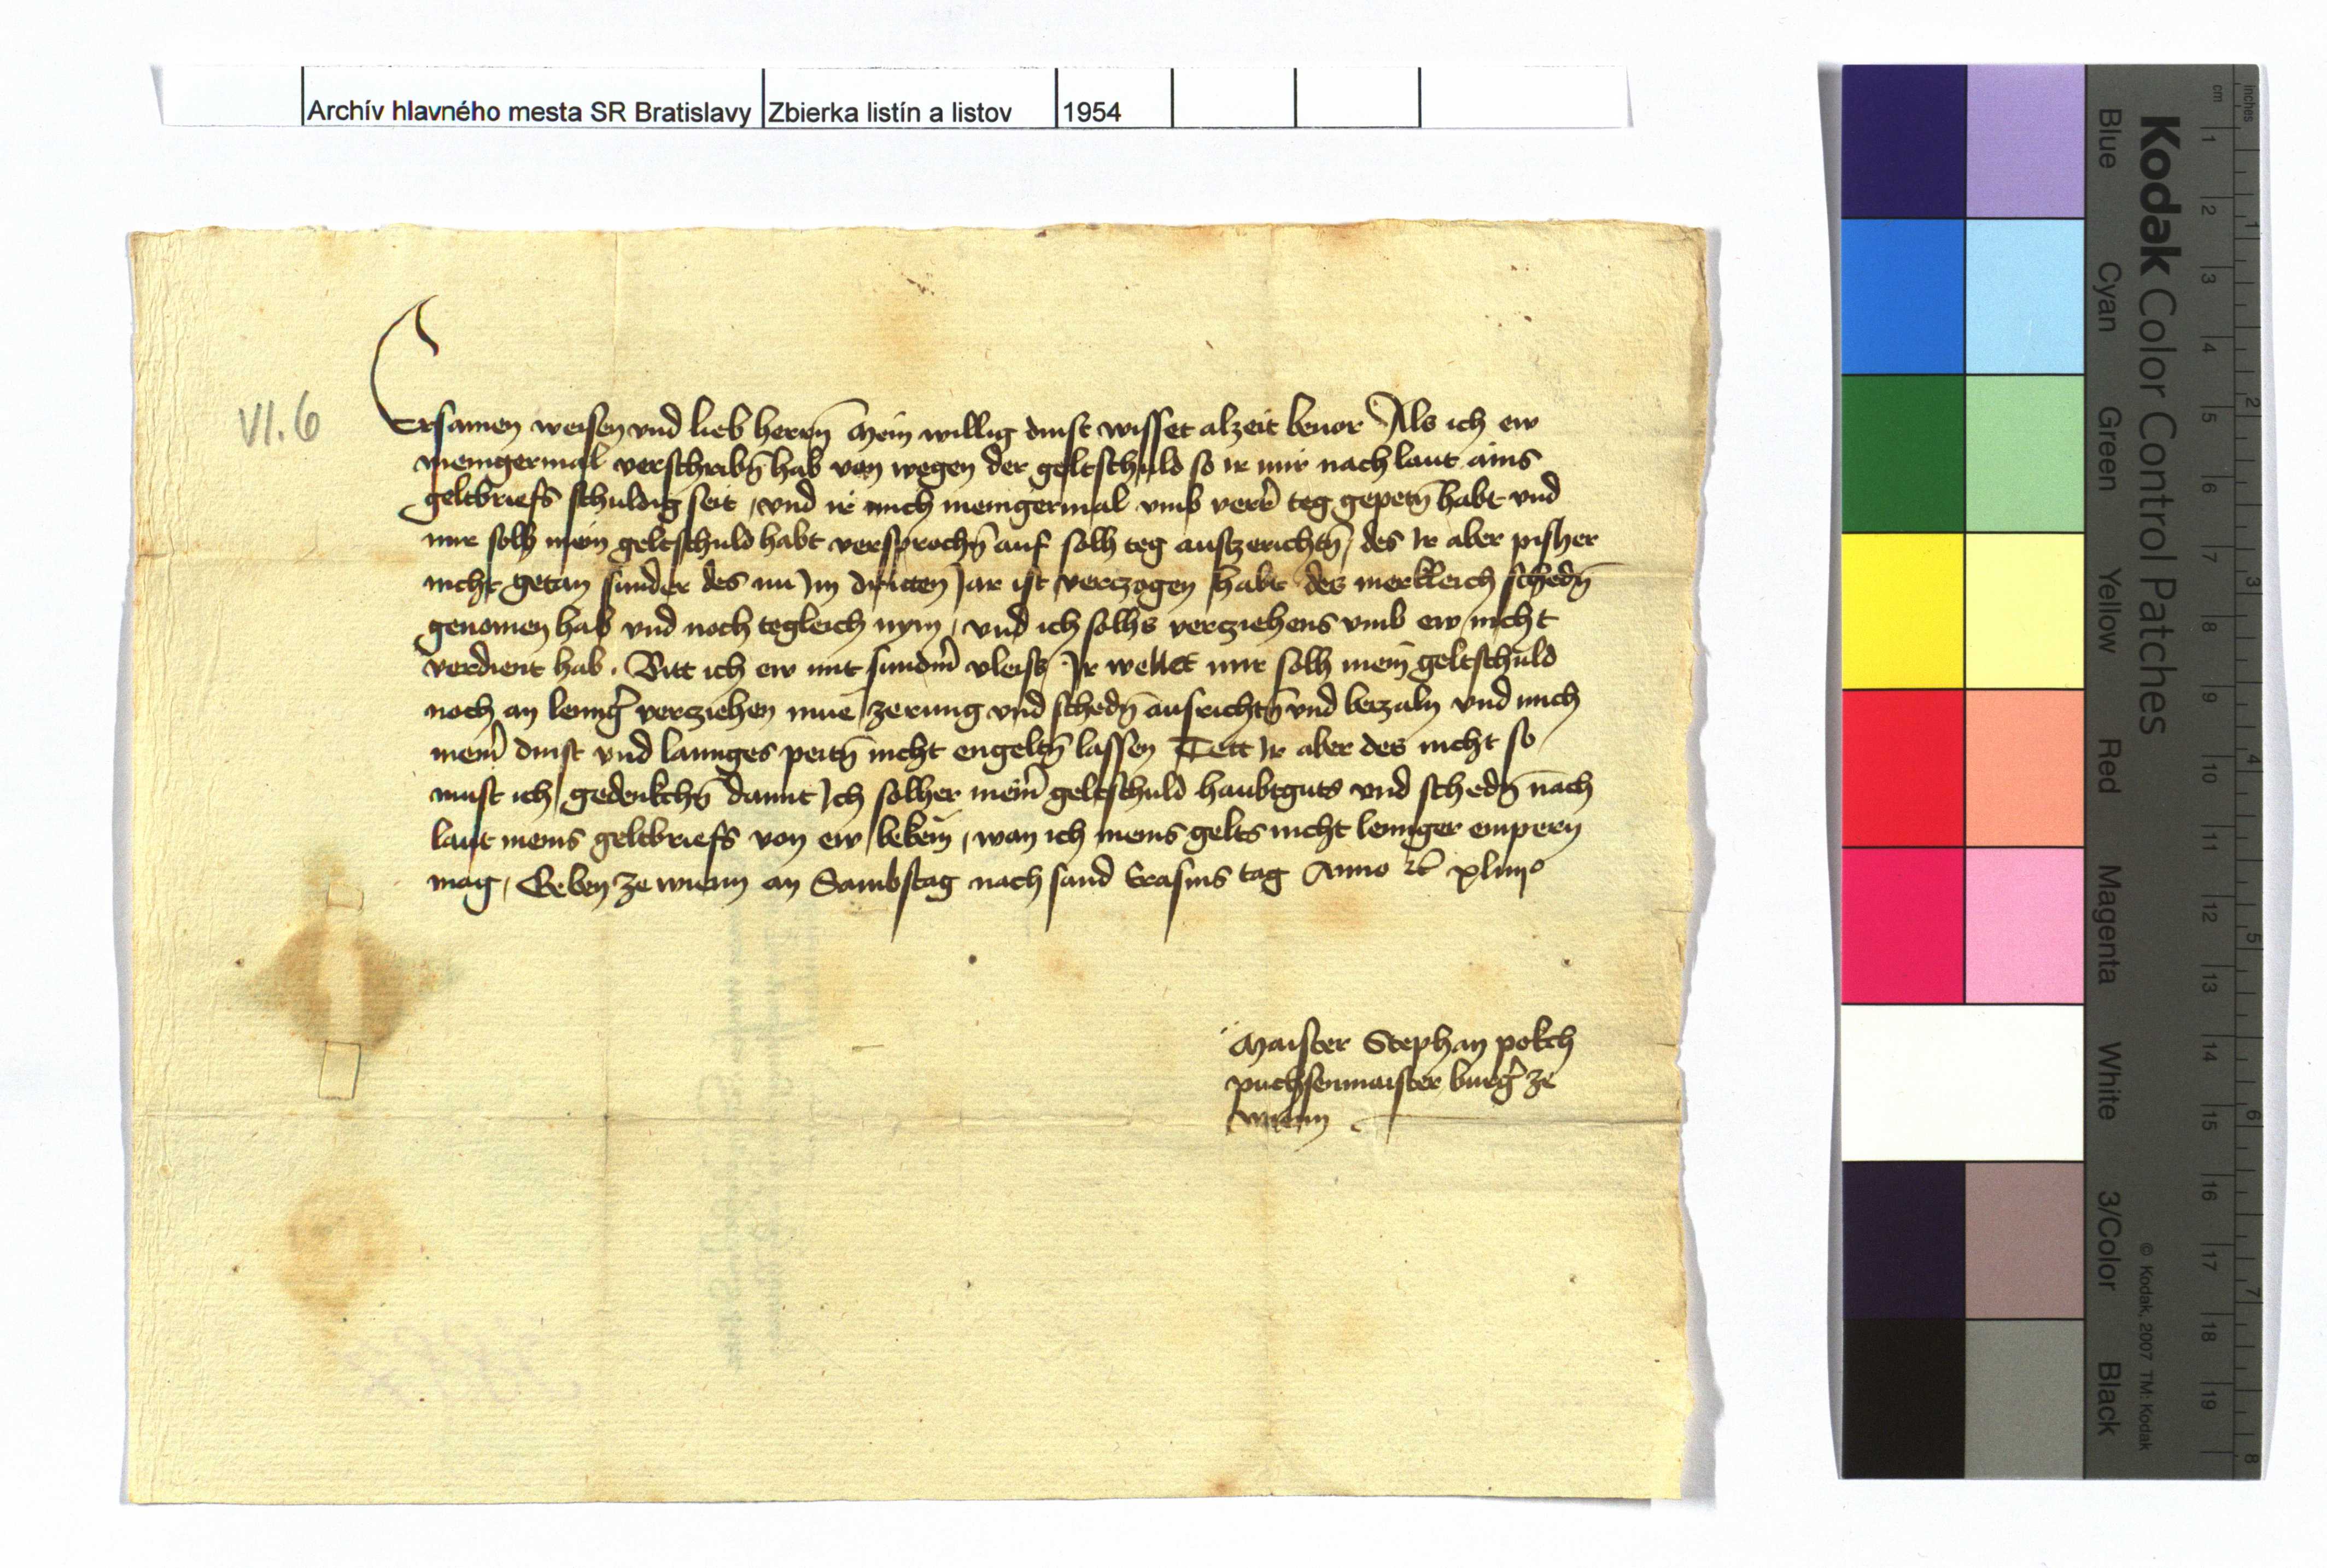 Archív hlavného mesta SR Bratislavy Zbierka listín a listov 1954
VI. 6
Ersamen weisen vnd lieb herrn̄ Mein willig dinst wisset alzeit beuor Als ich ew
menigermal verschribn̄ hab von wegen der geltschuld so ir mir nach laut ains
geltbriefs schuldig seit, vnd ir mich menigermal vmb verr̄ teg gepetn̄ habt vnd
mir solh mein geltschuld habt versprochn̄ auf solh teg auszerichtn̄, des Ir aber pisher
nicht getan sunder des nu Im dritten Jar ist verczogen habt des merkleich schedn̄
genomen hab vnd noch tegleich nym, vnd ich solhs verziehens vmb ew nicht
verdient hab. Bitt ich ew mit sundm̄ vleiss Ir wellet mir solh mein geltschuld
noch an lennḡ verziehen mue zerung vnd schedn̄ ausrichtn̄ vnd betzaln vnd mich
meīn dinst vnd lannges peitn̄ nicht engeltn̄ lassen Tett Ir aber des nicht so
must ich gedenkchn̄ damit Ich solher meīn geltschuld haubtguts vnd schedn̄ nach
laut meins geltbriefs von ew bekem, wan ich meins gelts nicht lennger empern
mag, Geben ze wienn an Sambstag nach sand Erasms tag Anno etc̄ xliiijo
Maister Stephan pokch
puchsenmaister burḡ ze
wienn
Kodak Color Control Patches
Blue Cyan Green Yellow Red Magenta White 3/Color Black
© Kodak, 2007 TM: Kodak
inches 1 2 3 4 5 6 7 8
cm 1 2 3 4 5 6 7 8 9 10 11 12 13 14 15 16 17 18 19